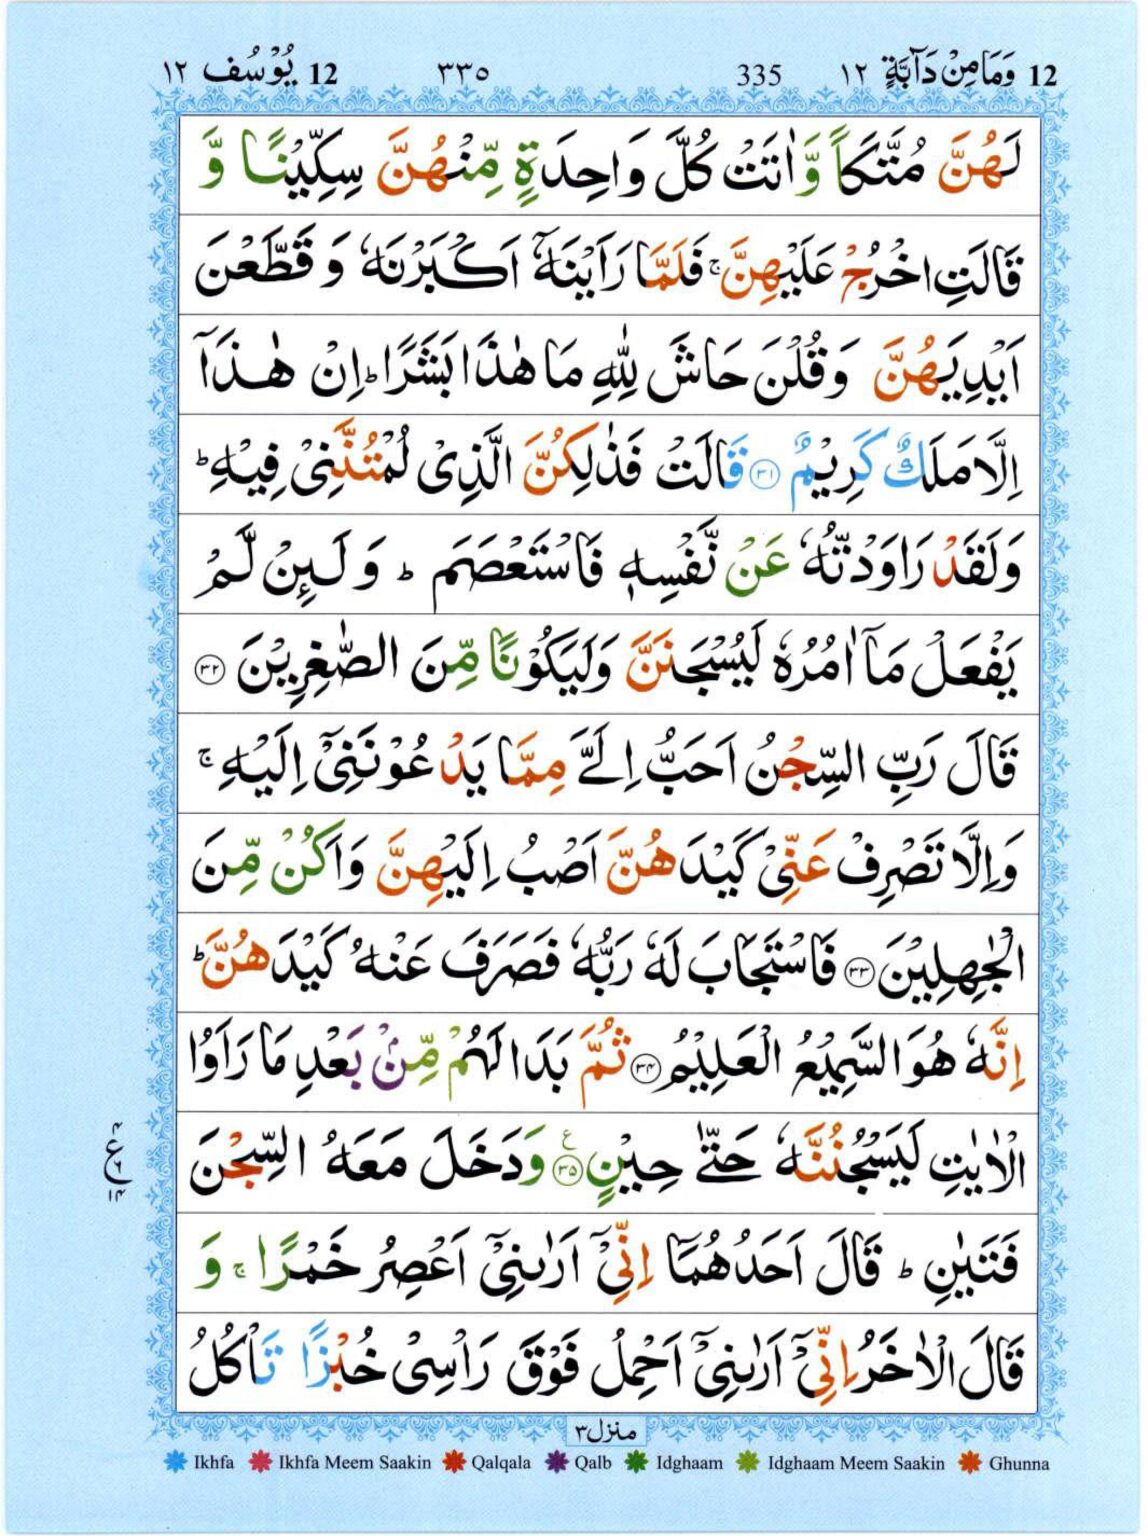 12 وَمَا مِنْ دَآبَّةٍ ١٢ 335 ٣٣٥ 12 يُوْسُف ١٢
لَهُنَّ مُتَّكَاً وَّاٰتَتْ كُلَّ وَاحِدَةٍ مِّنْهُنَّ سِكِّيْنًا وَّ
قَالَتِ اخْرُجْ عَلَيْهِنَّ ۚ فَلَمَّا رَاَيْنَهٗٓ اَكْبَرْنَهٗ وَ قَطَّعْنَ
اَيْدِيَهُنَّ وَقُلْنَ حَاشَ لِلّٰهِ مَا هٰذَا بَشَرًا ؕ اِنْ هٰذَاۤ
اِلَّا مَلَكٌ كَرِيْمٌ ﴿٣١﴾ قَالَتْ فَذٰلِكُنَّ الَّذِیْ لُمْتُنَّنِیْ فِيْهِ ؕ
وَلَقَدْ رَاوَدْتُّهٗ عَنْ نَّفْسِهٖ فَاسْتَعْصَمَ ؕ وَ لَئِنْ لَّمْ
يَفْعَلْ مَاۤ اٰمُرُهٗ لَيُسْجَنَنَّ وَلَيَكُوْنًا مِّنَ الصّٰغِرِيْنَ ﴿٣٢﴾
قَالَ رَبِّ السِّجْنُ اَحَبُّ اِلَیَّ مِمَّا يَدْعُوْنَنِیْۤ اِلَيْهِ ۚ
وَاِلَّا تَصْرِفْ عَنِّیْ كَيْدَهُنَّ اَصْبُ اِلَيْهِنَّ وَاَكُنْ مِّنَ
الْجٰهِلِيْنَ ﴿٣٣﴾ فَاسْتَجَابَ لَهٗ رَبُّهٗ فَصَرَفَ عَنْهُ كَيْدَهُنَّ ؕ
اِنَّهٗ هُوَ السَّمِيْعُ الْعَلِيْمُ ﴿٣٤﴾ ثُمَّ بَدَا لَهُمْ مِّنْۢ بَعْدِ مَا رَاَوُا
الْاٰيٰتِ لَيَسْجُنُنَّهٗ حَتّٰی حِيْنٍ ﴿٣٥﴾ ع وَدَخَلَ مَعَهُ السِّجْنَ
٤ ع ٦ ١٤
فَتَيٰنِ ؕ قَالَ اَحَدُهُمَاۤ اِنِّیْۤ اَرٰىنِیْۤ اَعْصِرُ خَمْرًا ۚ وَ
قَالَ الْاٰخَرُ اِنِّیْۤ اَرٰىنِیْۤ اَحْمِلُ فَوْقَ رَاْسِیْ خُبْزًا تَاْكُلُ
منزل ٣
Ikhfa Ikhfa Meem Saakin Qalqala Qalb Idghaam Idghaam Meem Saakin Ghunna